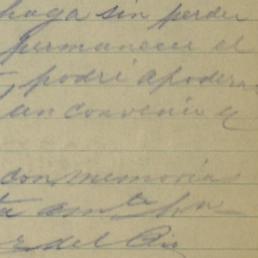 haga sin perder
permanecer el
podré apodera
un convenio y
con memorias
del Rio